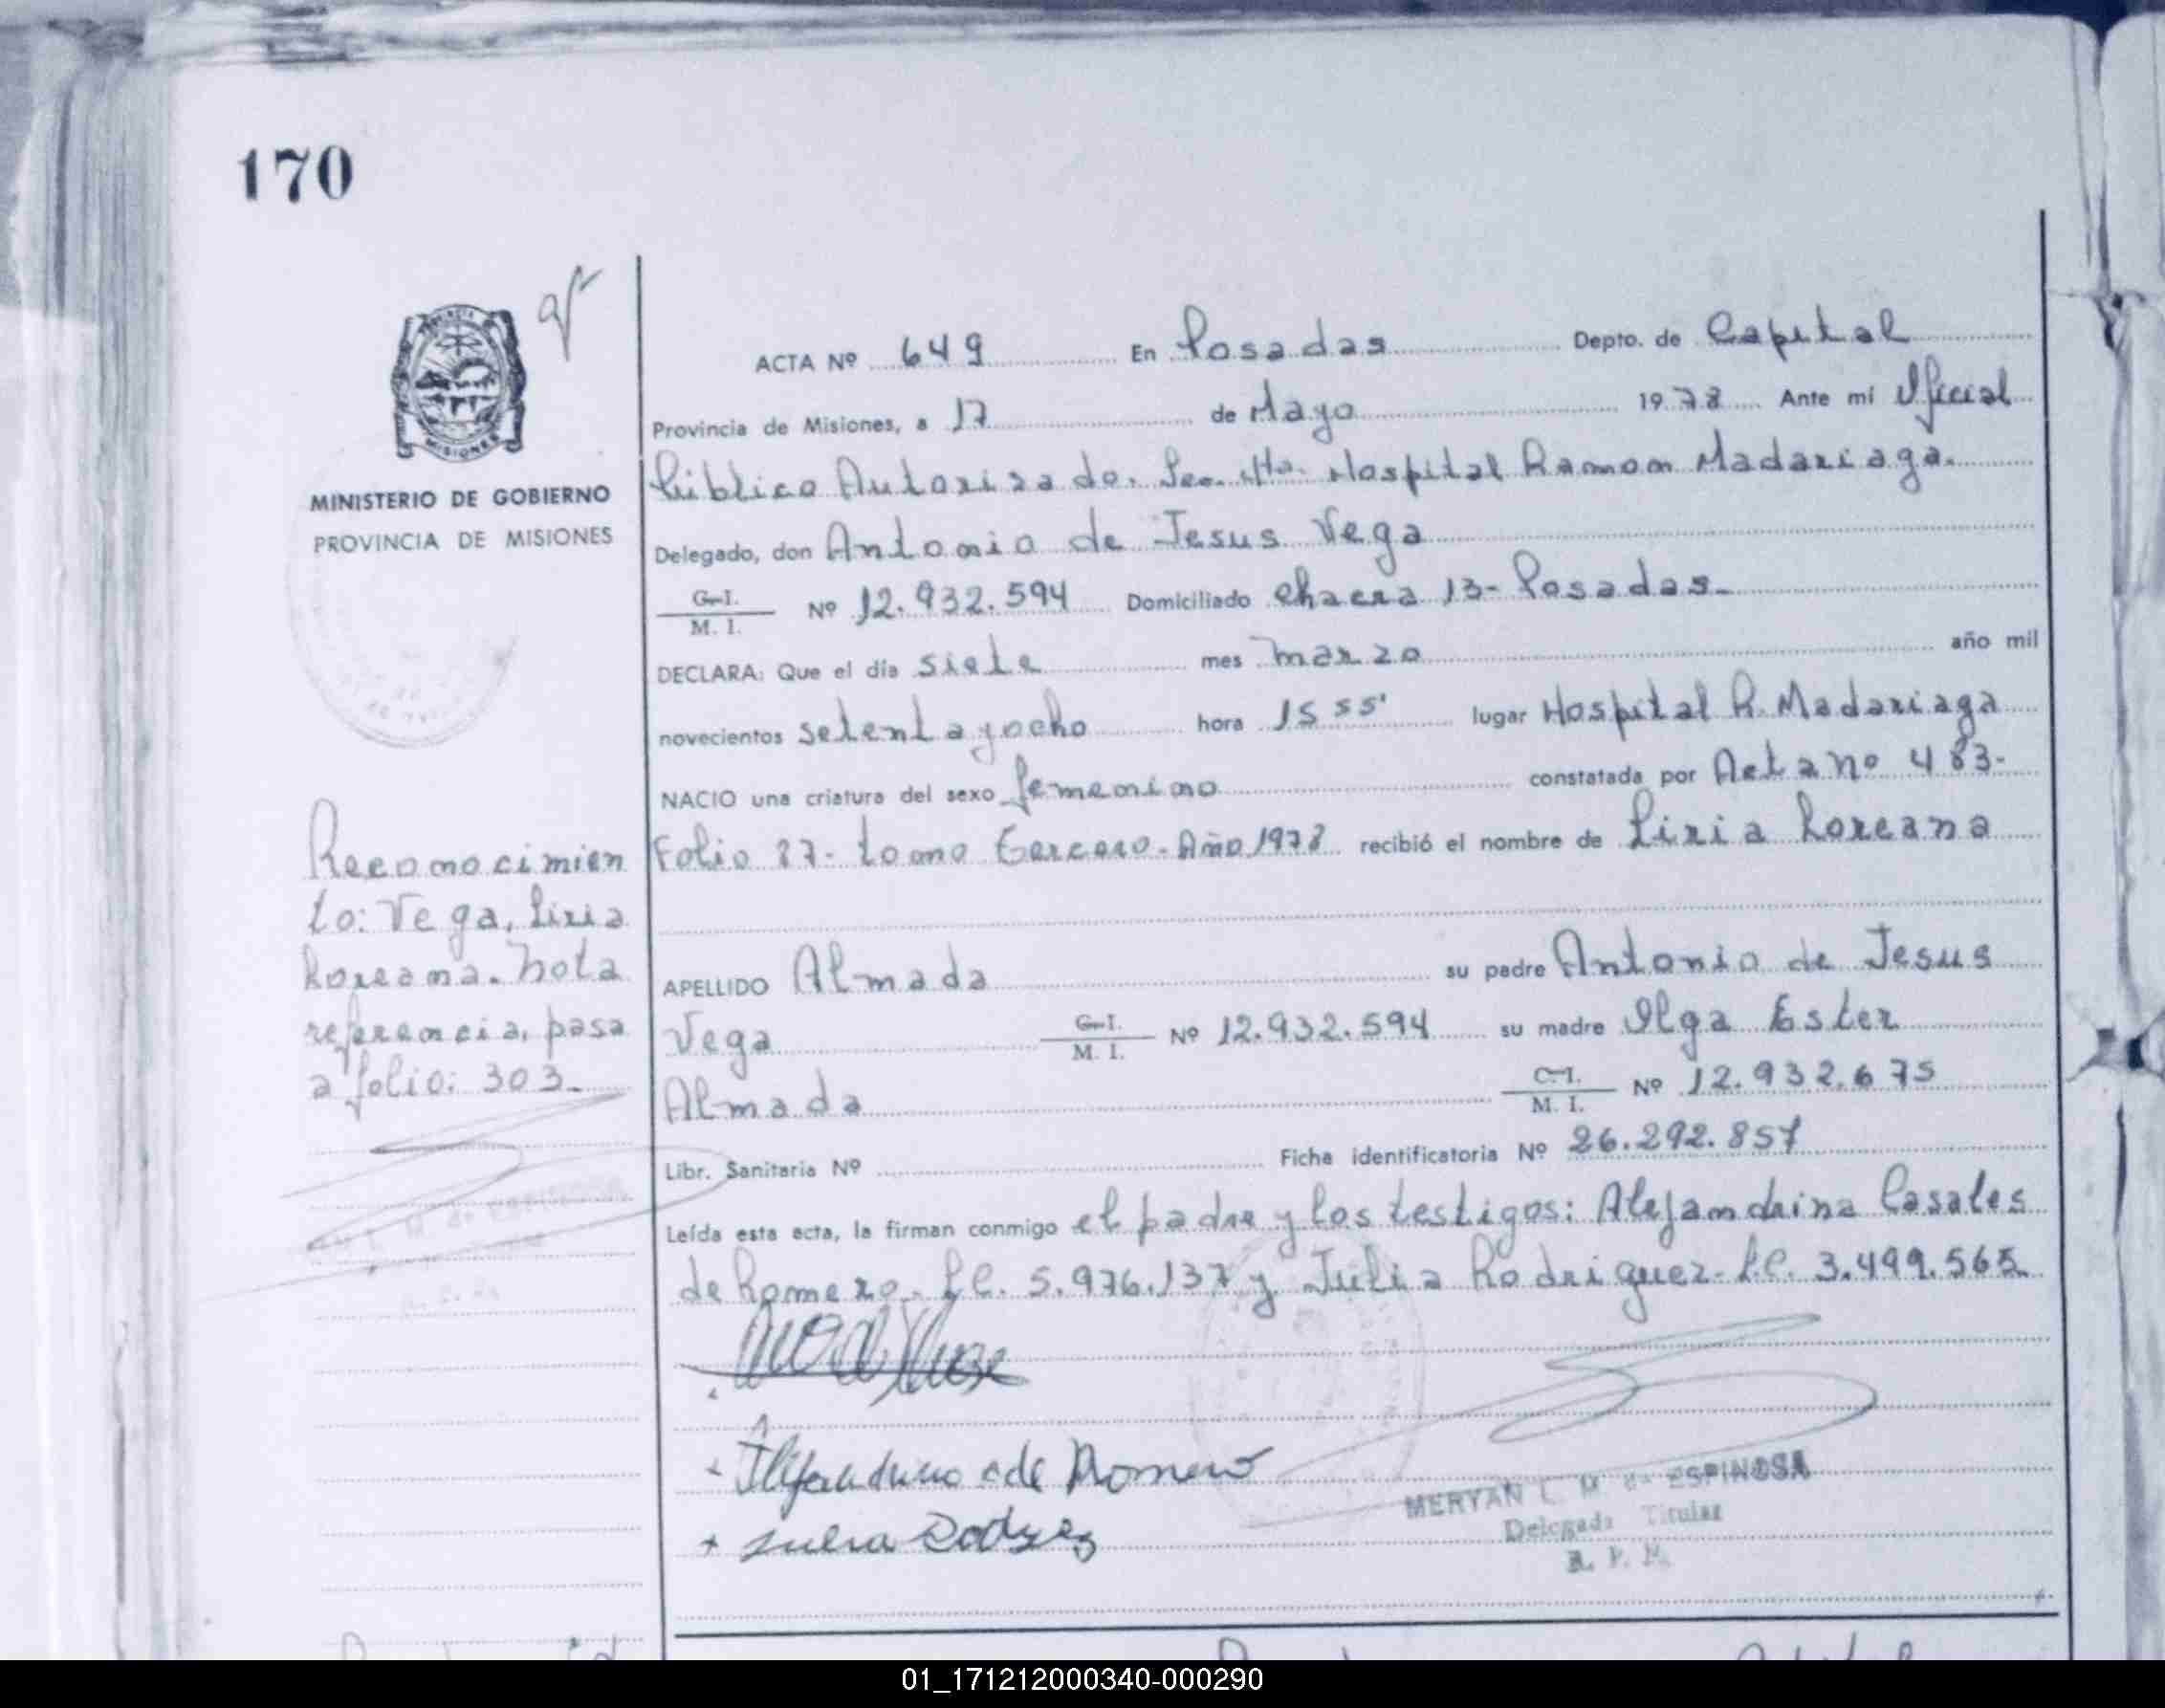 170
ACTA Nº 649 En Posadas Depto. de Capital
Provincia de Misiones, a 17 de Mayo 1978 Ante mí Oficial
Público Autorizado. Sec. Hta. Hospital Ramon Madariaga.
MINISTERIO DE GOBIERNO
PROVINCIA DE MISIONES
Delegado, don Antonio de Jesus Vega
C.I.
M. I. Nº 12.932.594 Domiciliado Chacra 13- Posadas-
DECLARA: Que el día siete mes marzo año mil
novecientos setenta y ocho hora 15 55' lugar Hospital R. Madariaga
NACIO una criatura del sexo femenino constatada por Acta nº 483-
Folio 87- tomo Tercero- Año 1978 recibió el nombre de Liria Loreana
APELLIDO Almada su padre Antonio de Jesus
Vega C.I.
M. I. Nº 12.932.594 su madre Olga Ester
Almada C.I.
M. I. Nº 12.932.675
Libr. Sanitaria Nº Ficha identificatoria Nº 26.292.857
Leída esta acta, la firman conmigo el padre y los testigos: Alejandrina Casales
de Romero. L.C. 5.976.137 y Julia Rodriguez- L.C. 3.499.565
Reconocimien
to: Vega, Liria
Loreana. Nota
referencia, pasa
a folio: 303-
de Romero
MERYAN L. M de ESPINOSA
Delegada Titular
R. P. P.
01_171212000340-000290